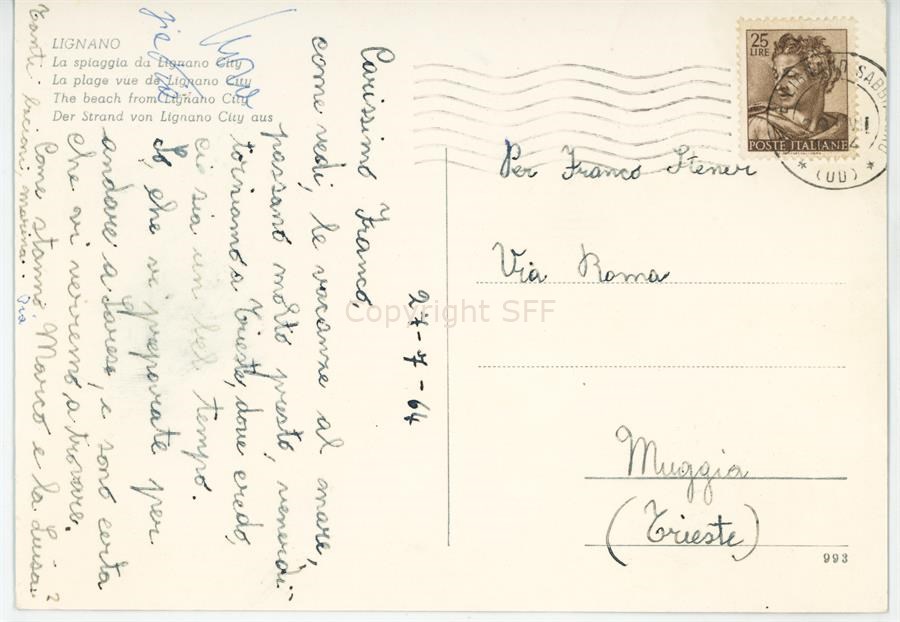 LIGNANO
La spiaggia da Lignano City
La plage vue de Lignano City
The beach from Lignano City
Der Strand von Lignano City aus
27-7-64
Carissimo Franco,
come vedi, le vacanze al mare,
passano molto presto, venerdì
torniamo a Trieste, dove credo,
ci sia un bel tempo.
So, che vi preparate per
andare a Varese, e sono certa
che vi verremo a trovare.
Come stanno Marco e la Luisa?
Tanti bacioni marina
25
LIRE
POSTE ITALIANE
SABBI
(UD)
Per Franco Stener
Via Roma
Muggia
(Trieste)
993
Copyright SFF